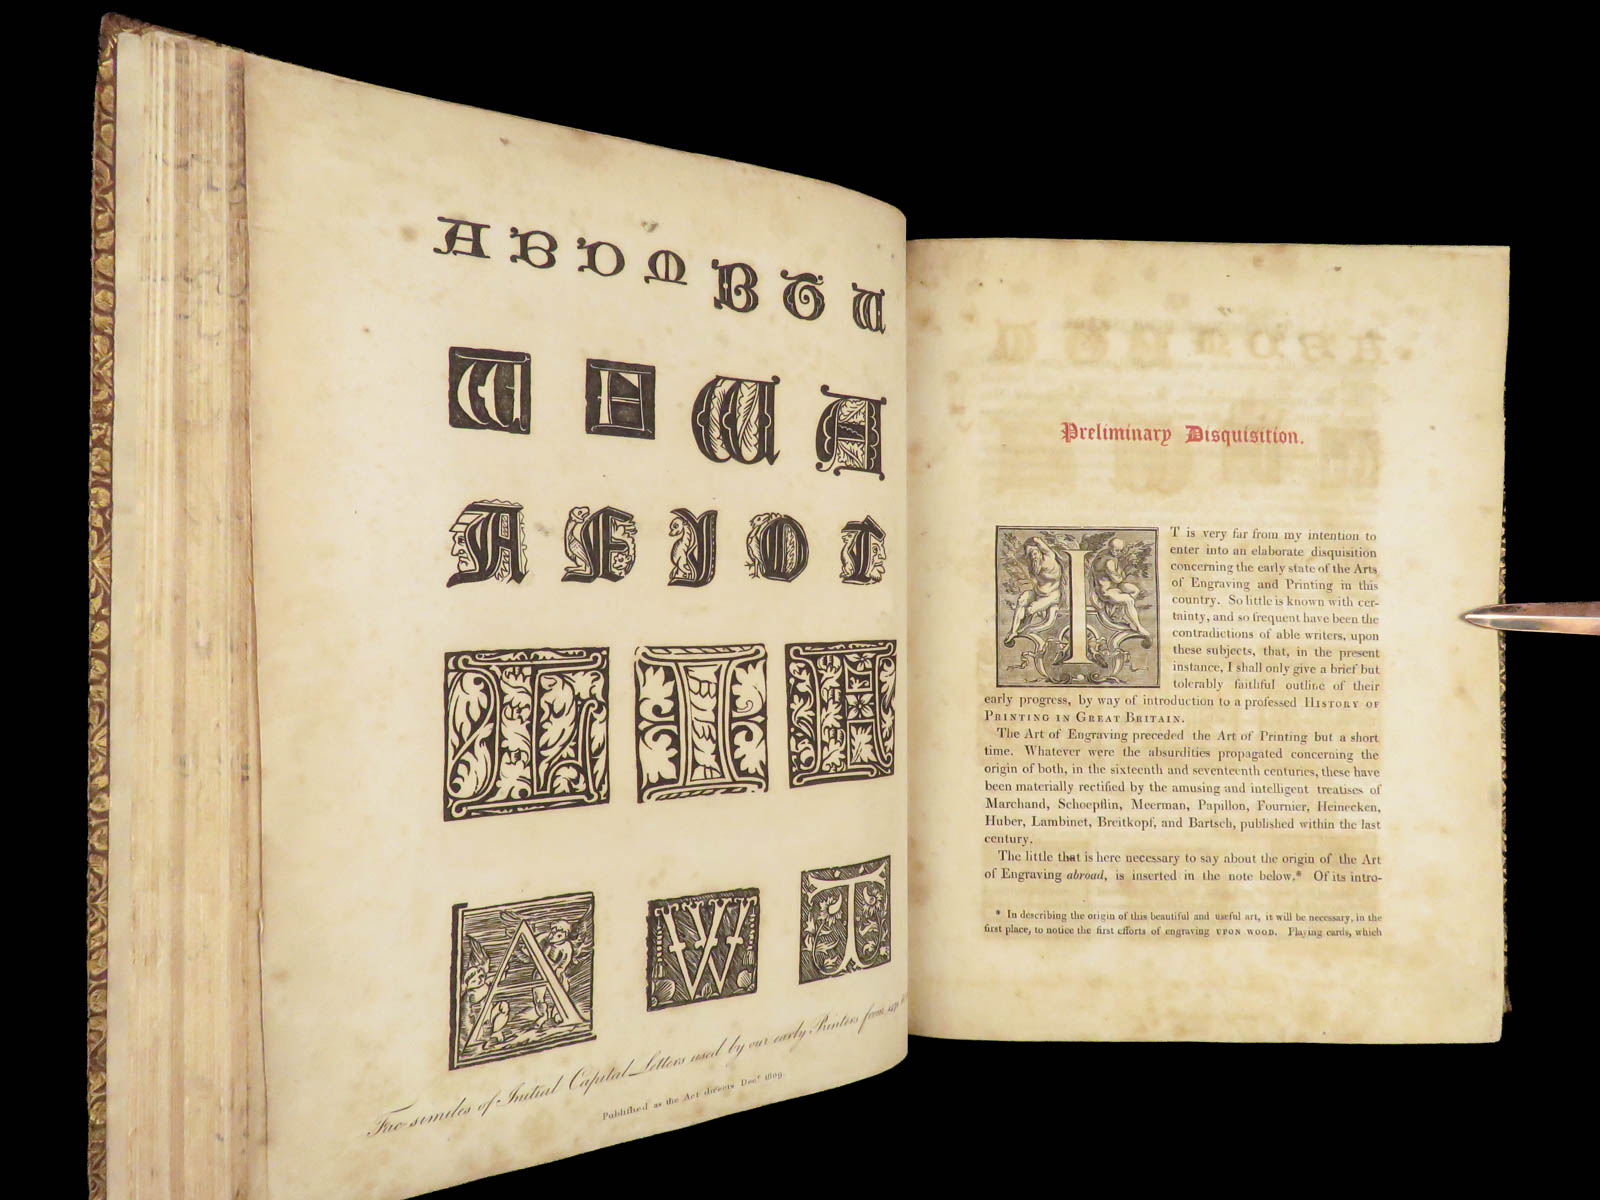 A B D M B T U
W H W A
A E Y O T
T I H
A W T
Fac-similes of Initial Capital Letters used by our early Printers from
Published as the Act directs Decr. 1809.
Preliminary Disquisition.
IT is very far from my intention to
enter into an elaborate disquisition
concerning the early state of the Arts
of Engraving and Printing in this
country. So little is known with cer-
tainty, and so frequent have been the
contradictions of able writers, upon
these subjects, that, in the present
instance, I shall only give a brief but
tolerably faithful outline of their
early progress, by way of introduction to a professed HISTORY OF
PRINTING IN GREAT BRITAIN.
The Art of Engraving preceded the Art of Printing but a short
time. Whatever were the absurdities propagated concerning the
origin of both, in the sixteenth and seventeenth centuries, these have
been materially rectified by the amusing and intelligent treatises of
Marchand, Schoepflin, Meerman, Papillon, Fournier, Heinecken,
Huber, Lambinet, Breitkopf, and Bartsch, published within the last
century.
The little that is here necessary to say about the origin of the Art
of Engraving abroad, is inserted in the note below.* Of its intro-
* In describing the origin of this beautiful and useful art, it will be necessary, in the
first place, to notice the first efforts of engraving UPON WOOD. Playing cards, which